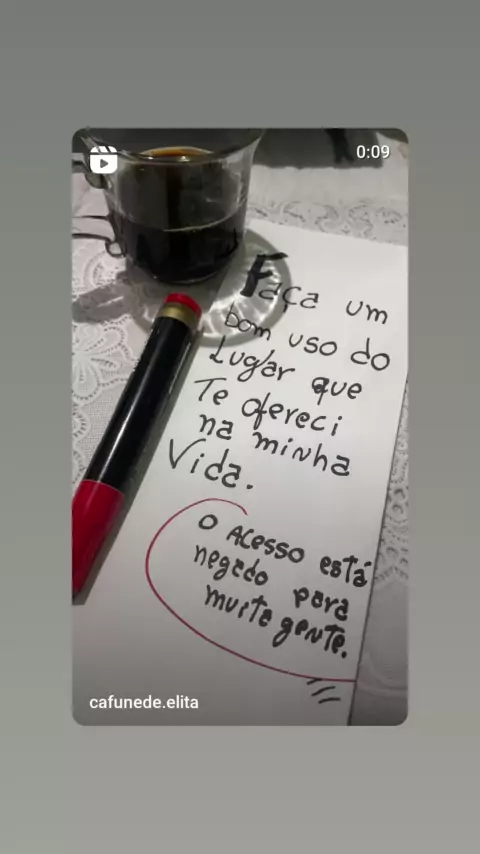 0:09
Faça um
bom uso do
Lugar que
Te ofereci
na minha
Vida.
O Acesso está
negado para
muita gente.
cafunede.elita